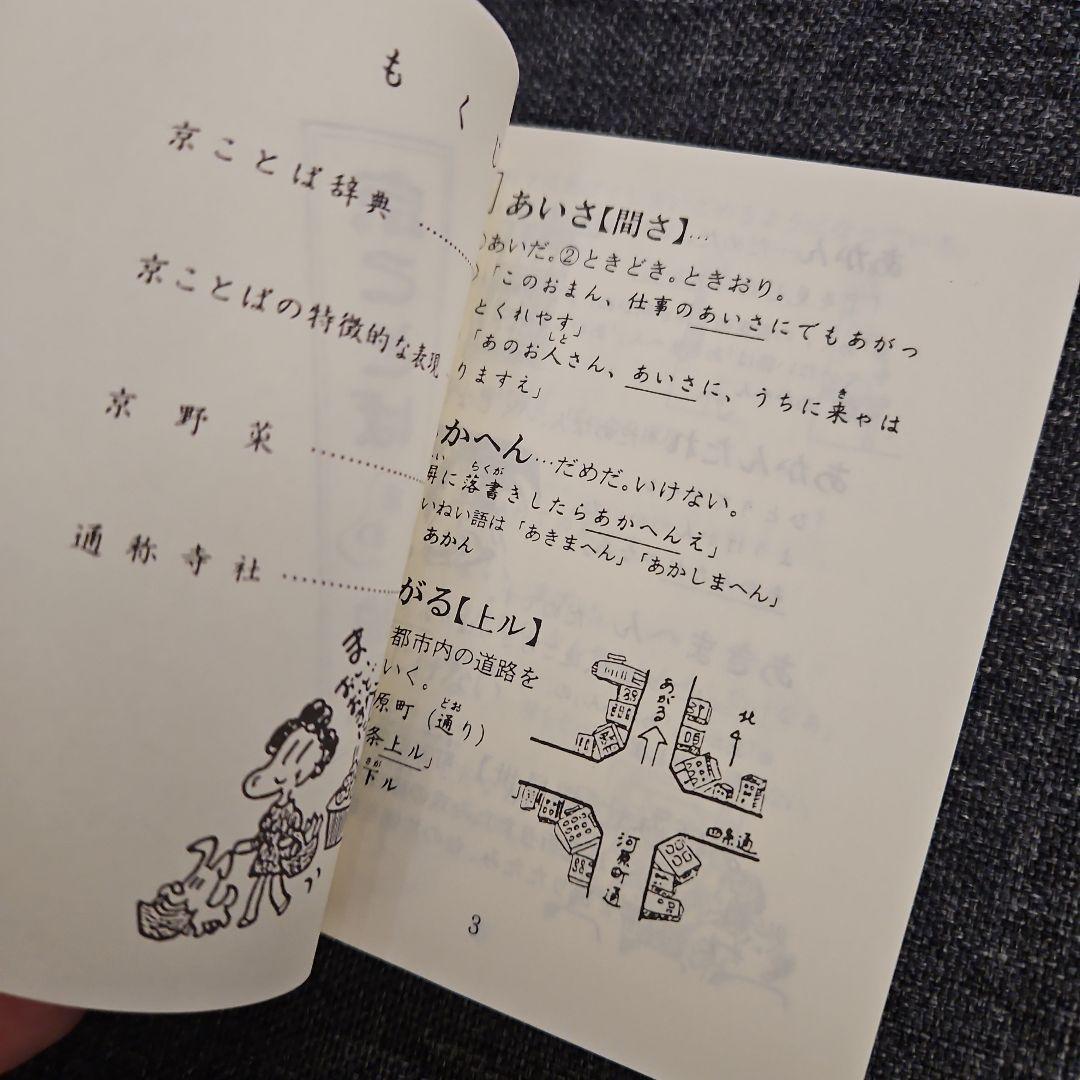 もくじ
京ことば辞典……
京ことばの特徴的な表現
京野菜……
通称寺社……
あいさ【間さ】…
あいだ。②ときどき。ときおり。
「このおまん、仕事のあいさにでもあがっ
とくれやす」
「あのお人さん、あいさに、うちに来やは
りますえ」
かへん…だめだ。いけない。
に落書きしたらあかへんえ」
いねい語は「あきまへん」「あかしまへん」
あかん
がる【上ル】
都市内の道路を
いく。
原町（通り）
条上ル」
下ル
あがる
北
四条通
河原町通
3